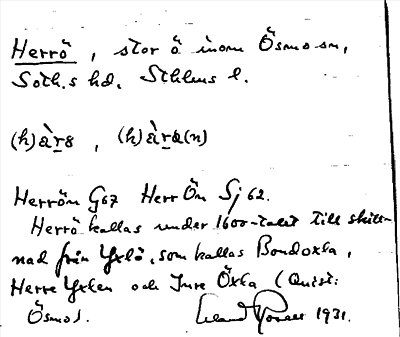 Herrö, stor ö inom Ösmo sn,
Soth.s hd. Sthlms l.
(h)àrs, (h)àra(n)
Herrön G67 Herr Ön Sj 62.
Herrö kallas under 1600-talet till skill-
nad från Yxlö, som kallas Bondoxta,
Herre Yxten och Inre Öxta (Quist:
Ösmo).
1931.